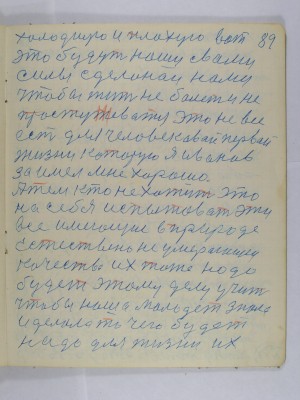 холодную и плохую вот 89
это будут нашы с вами
силы сделанаи нами
чтобы жить не болеть и не
простуживатся Это не все
ест для человека вай первай
жизни которую я Иванов
заимел мне хорошо.
А тем кто не хотят это
на себя испытоват эти
все имеющие в природе
естествено не умерающего
качества их тоже надо
будет этому делу учит
чтобы наша молодеж знала
и делала то чего будет
надо для жизни их